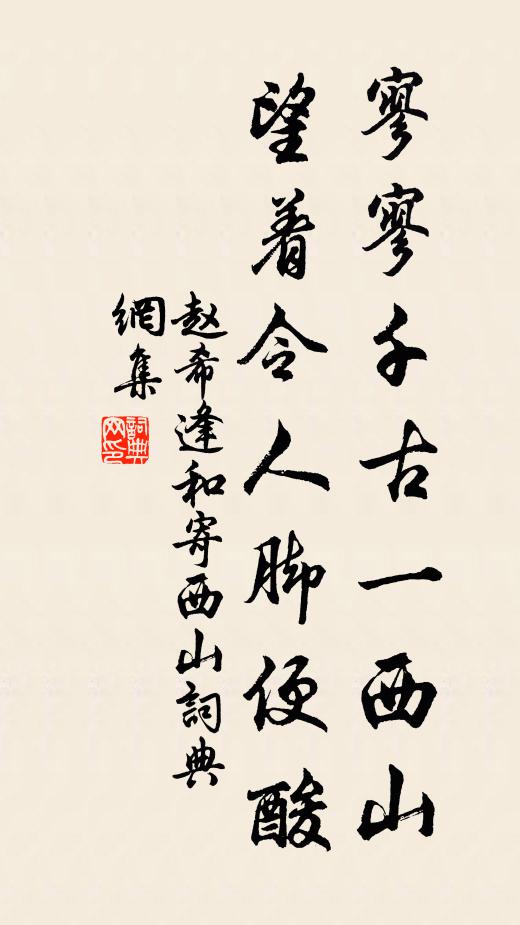 寥寥千古一西山
望着令人脚便酸
赵希逢和寄西山詞典
網集
詞典
网印